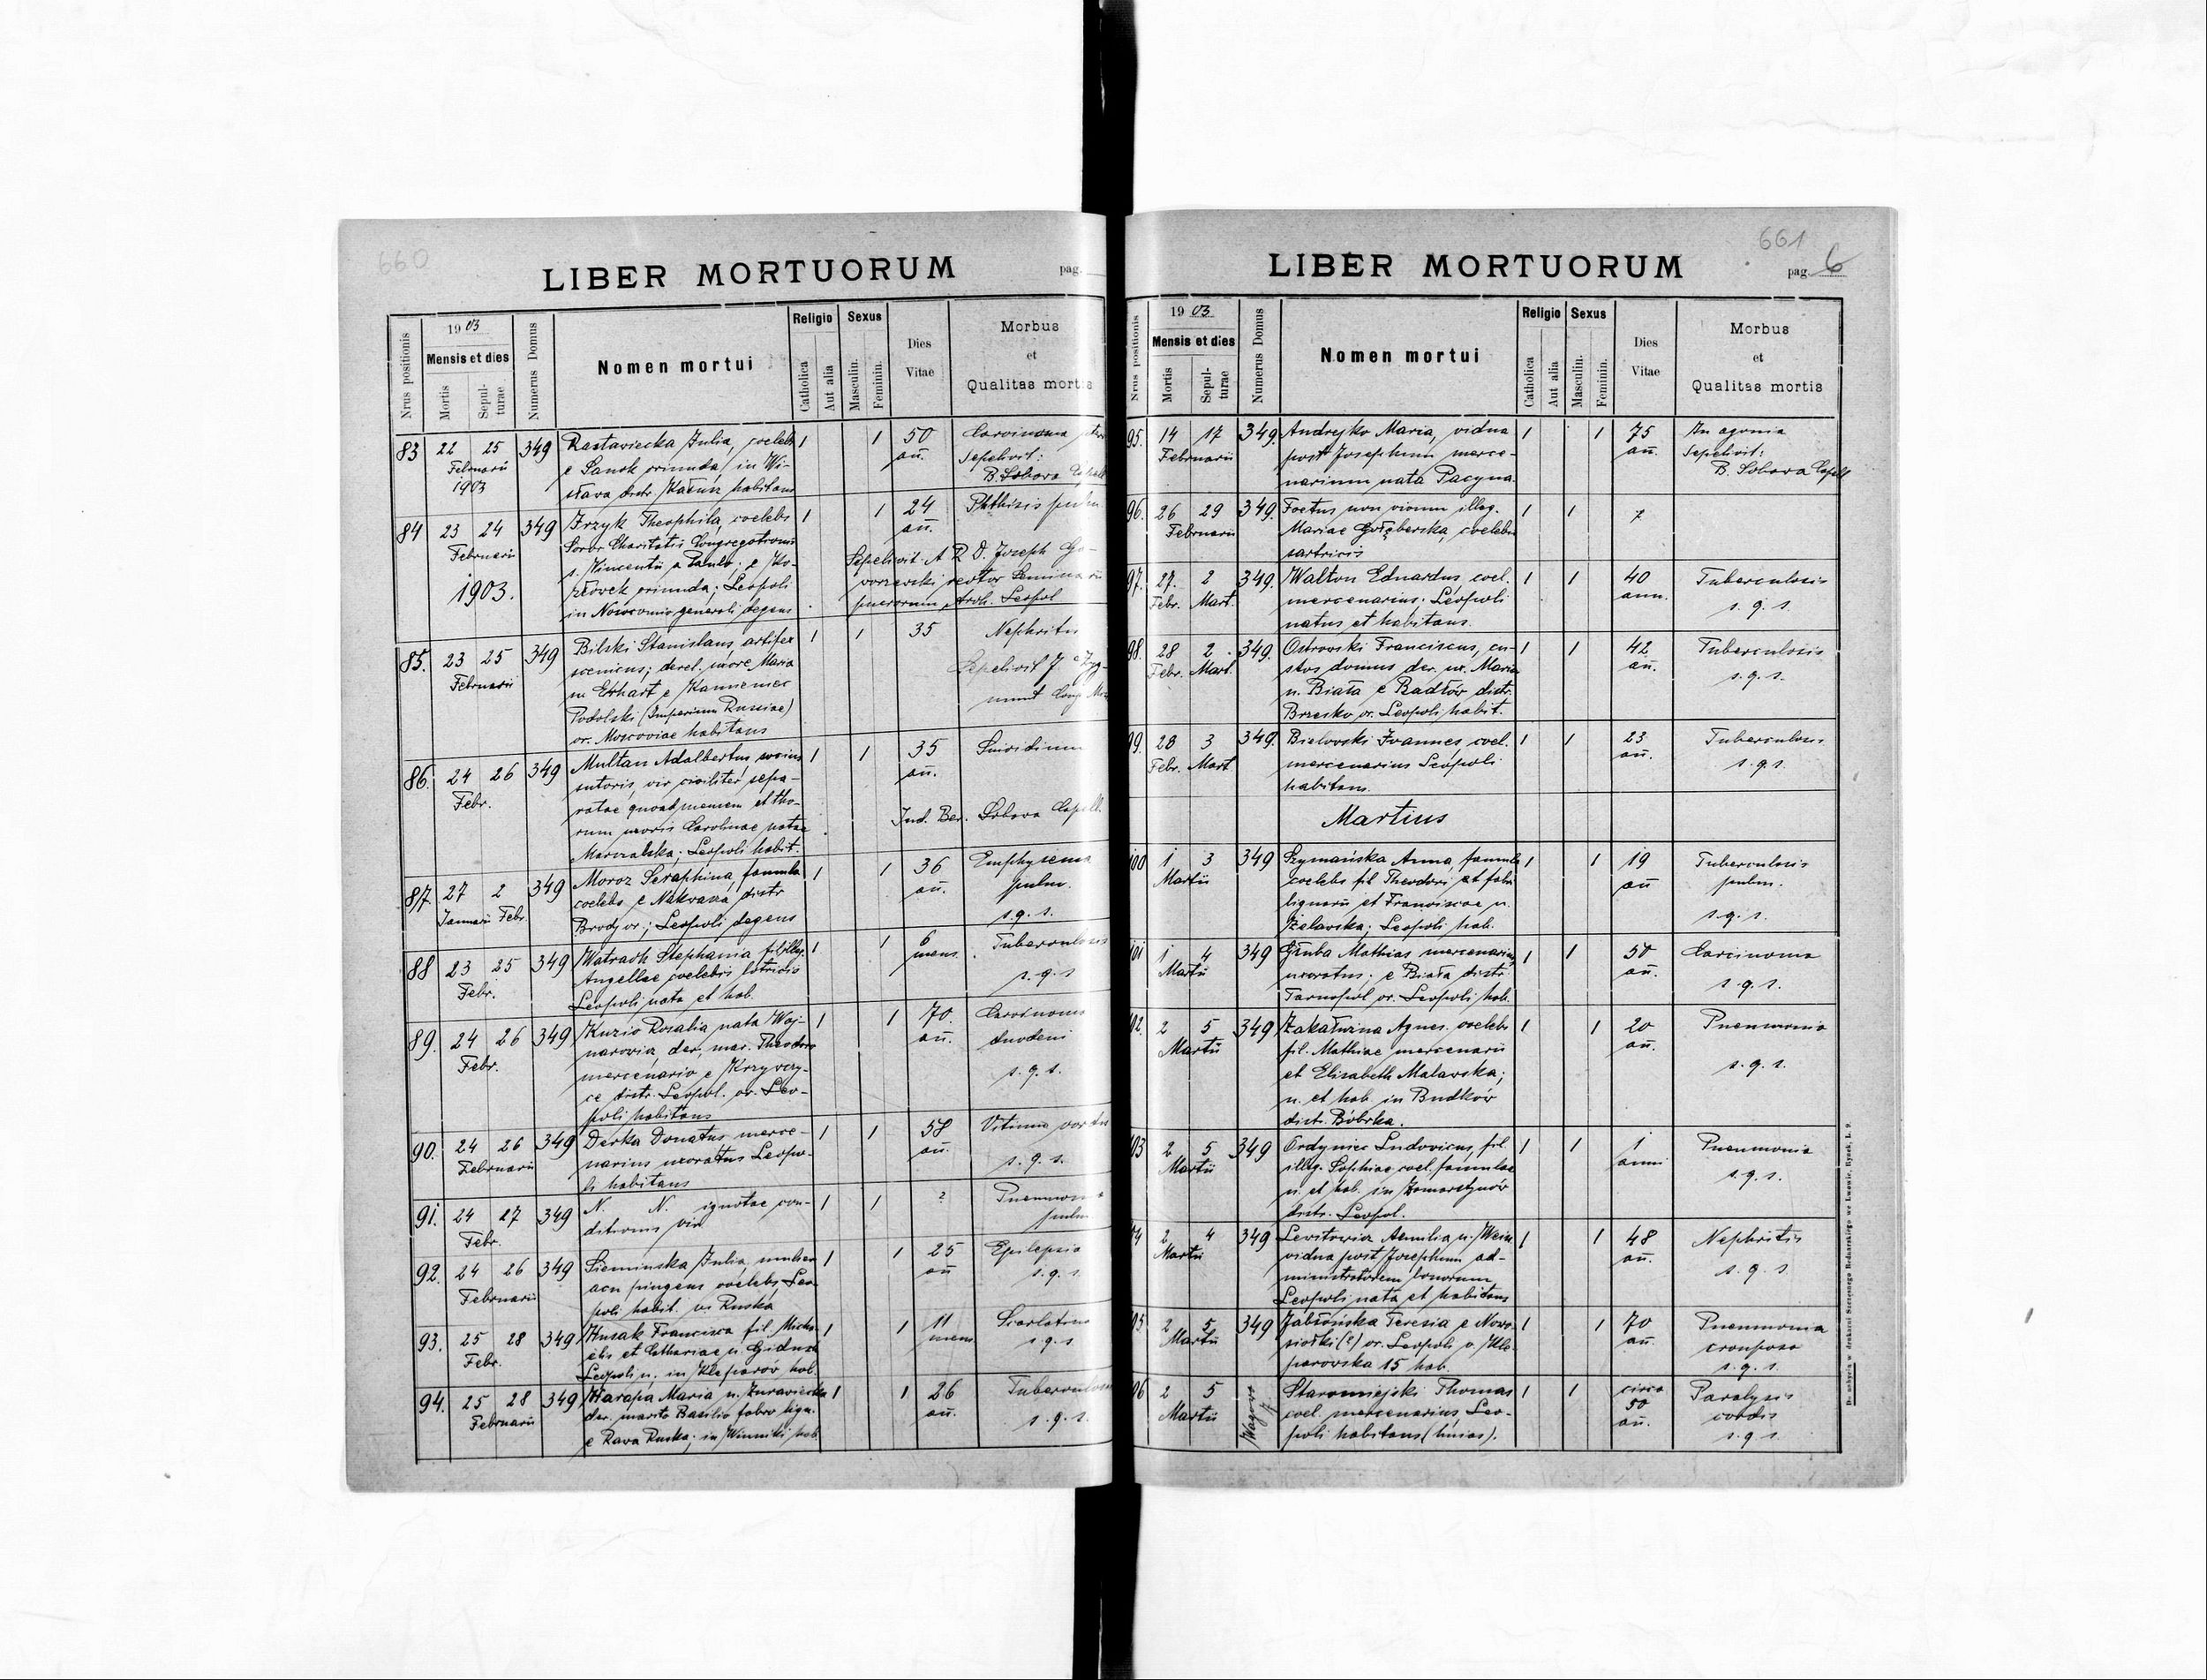 660
LIBER MORTUORUM
pag.
Nrus positionis
1903
Mensis et dies
Mortis
Sepulturae
Numerus Domus
Nomen mortui
Religio
Catholica
Aut alia
Sexus
Masculin.
Feminin.
Dies
Vitae
Morbus
et
Qualitas mortis
83 22 25 349 Rastawiecka Julia, coelebs 1 1 50
Februarii e Sanok oriunda, in Wi- añ. Sepelivit:
1903 habitans B. Sobova
84 23 24 349 Theophila, coelebs 1 1 24 Phthisis pulm
Februarii Soror Charitatis Congregationis añ.
s. Vincentii a Paulo; e Ko- Sepelivit A R. D. Joseph Go-
1903. oriunda; Leopoli rector Seminarii
in Nosocomio generali degens puerorum Arch. Leopol
85. 23 25 349 Bilski Stanislaus, artifex 1 1 35 Nephritis
Februarii scenicus; derel. uxore Maria Sepelivit
n. Erhart e Kamienec
Podolski (Imperium Russiae)
or. Moscoviae habitans
86. 24 26 349 Multan Adalbertus, socius 1 1 35 Suicidium
Febr. sutoris, vir civiliter sepa- añ.
ratae quoad mensam et tho-
rum uxoris Carolinae natae Ind. Ber. Sobova Capell.
Marszalska; Leopoli habit.
87. 27 2 349 Moroz Seraphina, famula 1 1 36 Emphysema
Januarii Febr. coelebs e Nakwasza distr añ. pulm.
Brody or; Leopoli degens s.q.s.
88 23 25 349 Watrach Stephania fil. illeg. 1 1 6 Tuberculosis
Febr. Angellae coelebis lotricis mens. s.q.s
Leopoli nata et hab.
89. 24 26 349 Kuzio Rosalia nata Woj- 1 1 70 Carcinoma
Febr. narowicz, der. mar. Theodoro añ. duodeni
mercenario e Krzywczy- s.q.s.
ce distr. Leopol. or. Leo-
poli habitans
90. 24 26 349 Derka Donatus merce- 1 1 58 Vitium cordis
Februarii narius uxoratus Leopo- añ. s.q.s.
li habitans
91. 24 27 349 N. N. ignotae con- 1 1 ? Pneumonia
Febr. ditionis vir pulm
92. 24 26 349 Sieminska Julia, mulier 1 1 25 Epilepsia
Februarii acu pingens coelebs, Leo- añ s.q.s.
poli habit. Ruska
93. 25 28 349 Husak Francisca fil. Micha- 1 1 11 Scarlatina
Febr. elis et Cathariae n. mens s.q.s
Leopoli n. in Kleparów hab.
94. 25 28 349 Harapa Maria n. Zurawiecka 1 1 26 Tuberculosis
Februarii der. marito Basilio fabro lign. añ. s.q.s.
e Rawa Ruska; in Winniki hab.
661
LIBER MORTUORUM
pag. 6
Nrus positionis
1903
Mensis et dies
Mortis
Sepulturae
Numerus Domus
Nomen mortui
Religio
Catholica
Aut alia
Sexus
Masculin.
Feminin.
Dies
Vitae
Morbus
et
Qualitas mortis
95. 14 17 349. Andrejko Maria, vidua 1 1 75 In agonia
Februarii post Josephum merce- añ. Sepelivit:
narium nata Pacyna. B. Sobova Capell
96. 26 29 349. Foetus non vivum illeg. 1 1
Februarii Mariae Gołęberska coelebs
sartricis
97. 27. 2 349. Walton Eduardus, coel. 1 1 40 Tuberculosis
Febr. Mart. mercenarius; Leopoli ann. s.q.s.
natus et habitans.
98. 28 2 349. Ostrowski Franciscus, cu- 1 1 42 Tuberculosis
Febr. Mart. stos domus der. ux. Maria añ. s.q.s.
n. Biała e Radłów distr.
Brzesko or. Leopoli habit.
99. 28 3 349. Bielowski Joannes, coel. 1 1 23 Tuberculosis
Febr. Mart mercenarius Leopoli añ. s.q.s.
habitans.
Martius
100 1 3 349 Szymańska Anna, famula 1 1 19 Tuberculosis
Martii coelebs fil Theodori et fabri añ pulm.
lignarii et Franciscae n. s.q.s.
Żelawska; Leopoli hab.
101 1 4 349 Gruba Mathias mercenarius 1 1 50 Carcinoma
Martii uxoratus; e Biała distr. añ. s.q.s.
Tarnopol or. Leopoli hab.
102. 2 5 349 Zakałużna Agnes. coelebs 1 1 20 Pneumonia
Martii fil. Mathiae mercenarii añ. s.q.s.
et Elisabeth Malawska;
n. et hab. in Budków
distr. Bóbrka.
103 2 5 349 Ordyniec Ludovicus, fil. 1 1 1 Pneumonia
Martii illeg. Sophiae coel. famulae anni s.q.s.
n. et hab. in Zamarstynów
distr. Leopol.
104 2 4 349 Lewstowicz Aemilia n. Wein 1 1 48 Nephritis
Martii vidua post Josephum ad- añ. s.q.s.
ministratorem bonorum
Leopoli nata et habitans
105 2 5 349 Jabłońska Teresia e Nowo- 1 1 70 Pneumonia
Martii siołki (?) or. Leopoli v. Kle- añ. crouposa
parowska 15 hab. s.q.s.
106 2 5 Wagowa 7 Staromiejski Thomas 1 1 circa 50 Paralysis
Martii coel. mercenarius, Leo- añ. cordis
poli habitans s.q.s.